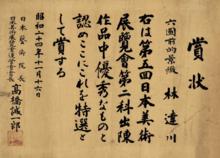 賞状
六園前の景緻
林達川
右は第五回日本美術
展覧會第二科出陳
作品中優秀なものと
認めここにこれを特選と
して賞する
昭和二十四年十一月十六日
日本藝術院長
高橋誠一郎